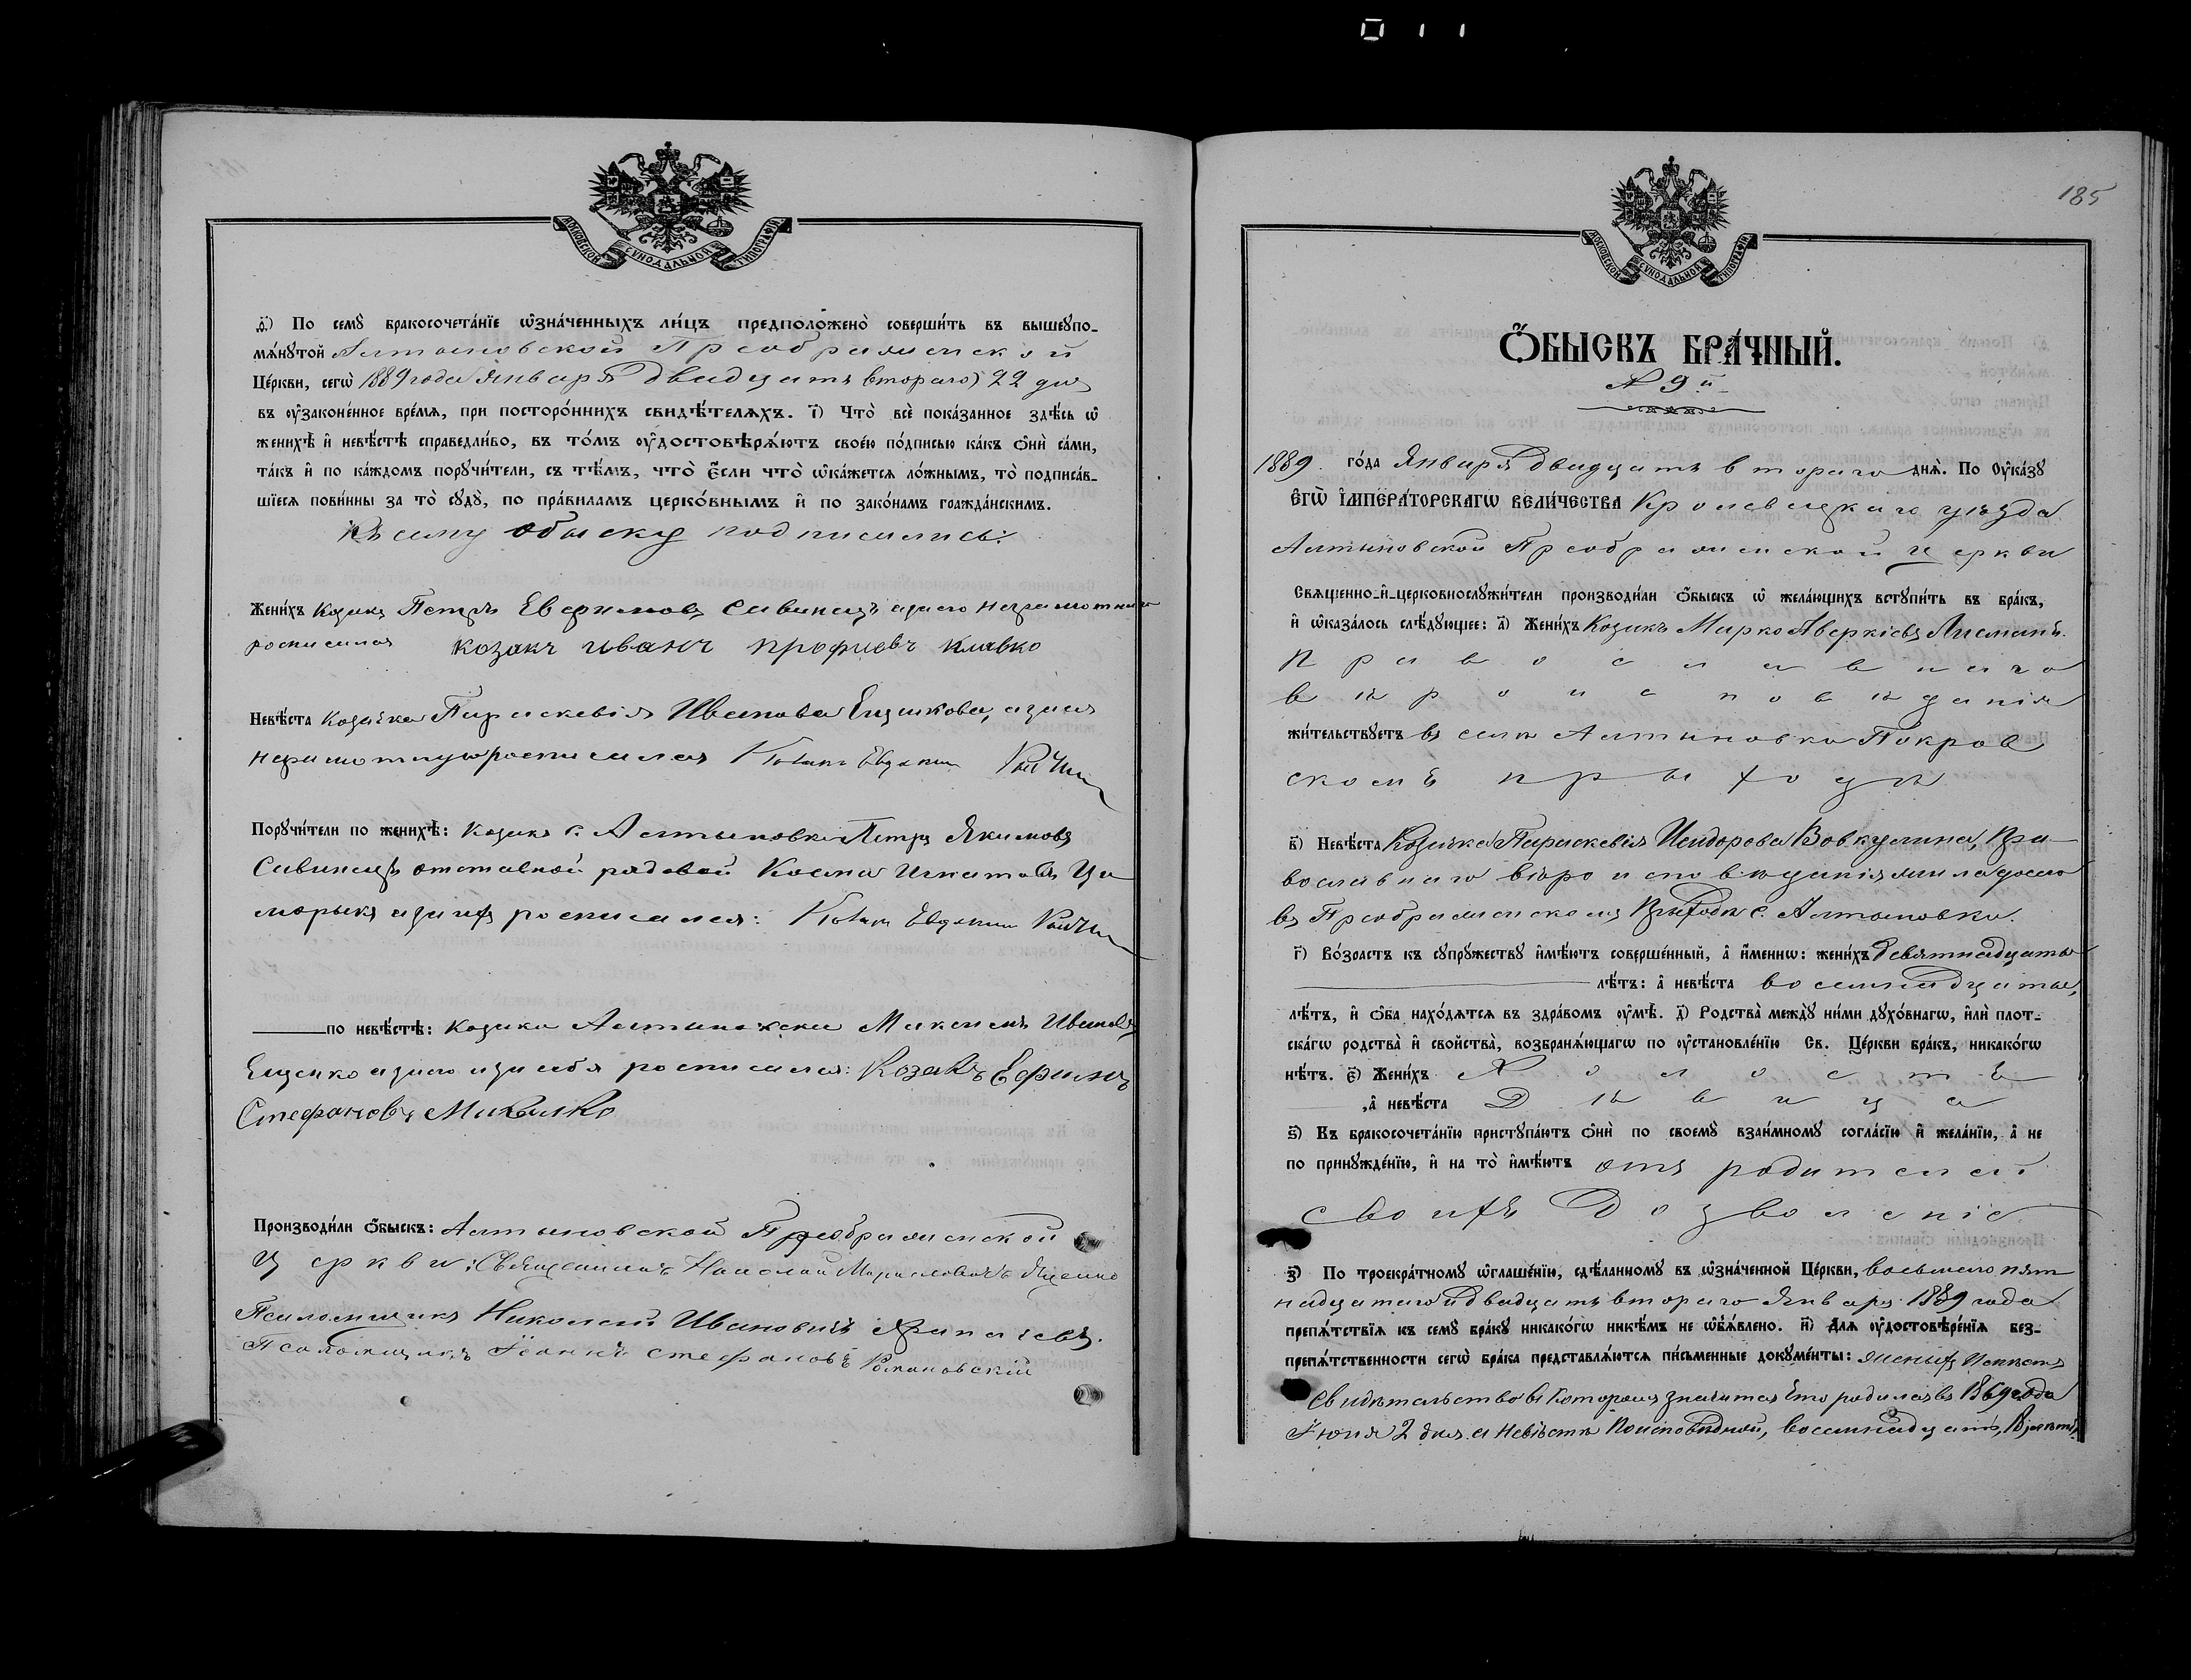 011
МОСКОВСКОЙ СУНОДАЛЬНОЙ ТИПОГРАФІИ
ѳ҃) По семꙋ̀ бракосочета́нїе ѡ҆зна́ченныхъ ли́цъ предполо́жено̀ соверши́ть въ вышеꙋпо-
мѧ́нꙋтой Алтыновской Преображенской
Це́ркви, сегѡ̀ 1889 года Января Двадцать втораго) 22 дня
въ ᲂу҆зако́ненное вре́мѧ, при посторо́ннихъ свидѣ́телѧхъ. і҃) Что̀ всѐ пока́занное здѣ́сь ѡ҆
женихѣ̀ и҆ невѣ́стѣ справедли́во, въ то́мъ ᲂу҆достовѣрѧ́ютъ свое́ю по́дписью ка́къ ѻ҆нѝ са́ми,
та́къ и҆ по ка́ждомъ порꙋчи́тели, съ тѣ́мъ, что̀ є҆́сли что̀ ѡ҆ка́жетсѧ ло́жнымъ, то̀ подписа́в-
шїесѧ пови́нны за то̀ сꙋдꙋ̀, по пра́виламъ церко́внымъ и҆ по зако́намъ гражда́нскимъ.
Къ сему обыску подписались:
Жени́хъ Козакъ Петръ Евфимовъ Савинецъ а заего неграмотнаго
росписался козакъ иванъ Клавко
Невѣ́ста Козачка Параскевія Иванова Ещенкова, а занея
неграмотную росписался Козакъ Евдоким
Порꙋчи́тели по женихѣ̀: Козакъ с. Алтыновки Петръ Якимовъ
Савинецъ отставной рядовой Косма Игнатовъ
а за ихъ росписался: Козакъ Евдоким
по невѣ́стѣ: Козаки Алтыновски Максимъ Ивановъ
Ещенко а заего и за себя росписался: Козакъ Ефимъ
Стефановъ
Произво́дили ѻ҆́быскъ: Алтыновской Преображенской
Церкви: Священникъ Николай Ященко
Псаломщикъ Николай Ивановичъ
Псаломщикъ Іоаннъ Стефановъ Романовскій
185
МОСКОВСКОЙ СУНОДАЛЬНОЙ ТИПОГРАФІИ
Ѻ҆́БЫСКЪ БРА́ЧНЫЙ.
№ 9й
1889. го́да Января двадцать втораго днѧ̀. По Оу҆ка́зꙋ
Є҆гѡ̀ И҆мпера́торскагѡ вели́чества Кролевецкаго уѣзда
Алтыновской Преображенской церкви
Свѧще́нно-и҆-церковнослꙋжи́тели производи́ли ѻ҆́быскъ ѡ҆ жела́ющихъ встꙋпи́ть въ бра́къ,
и҆ ѡ҆каза́лось слѣ́дꙋющее: а҃) Жени́хъ Козакъ Марко Аверкіевъ Лисманъ.
Православнаго
вѣроисповѣданія
жи́тельствꙋетъ въ селѣ Алтыновка Покров
скомъ приходѣ
в҃) Невѣ́ста Козачка Параскевія Исидорова Вовкулина, Пра-
вославнаго вѣроисповѣданія жила досего
въ Преображенскомъ Приходѣ с. Алтыновки.
г҃) Во́зрастъ къ сꙋпрꙋ́жествꙋ и҆мѣ́ютъ соверше́нный, а҆ и҆́меннѡ: жени́хъ Девятнадцать
лѣ́тъ: а҆ невѣ́ста восемнадцать,
лѣ́тъ, и҆ ѻ҆́ба нахо́дѧтсѧ въ здра́вомъ ᲂу҆мѣ̀. д҃) Родства̀ междꙋ̀ ни́ми дꙋхо́внагѡ, и҆лѝ плот-
ска́гѡ родства̀ и҆ свойства̀, возбранѧ́ющагѡ по ᲂу҆становле́нїю Св. Це́ркви бра́къ, никако́гѡ
нѣ́тъ. є҃) Жени́хъ Холостъ
, а҆ невѣ́ста Дѣвица
ѕ҃) Къ бракосочета́нїю пристꙋпа́ютъ ѻ҆нѝ по своемꙋ̀ взаи́мномꙋ согла́сїю и҆ жела́нїю, а҆ не
по принꙋжде́нїю, и҆ на то̀ и҆мѣ́ютъ отъ родителей
своихъ Дозволеніе
з҃) По троекра́тномꙋ ѡ҆глаше́нїю, сдѣ́ланномꙋ въ ѡ҆зна́ченной Це́ркви, восьмаго пят
надцатаго и двадцать втораго Января 1889 года
препѧ́тствїѧ къ семꙋ̀ бра́кꙋ никако́гѡ никѣ́мъ не ѡ҆б̾ѧ́влено. и҃) Для ᲂу҆достовѣ́ренїѧ без-
препѧ́тственности сегѡ̀ бра́ка представлѧ́ютсѧ пи́сьменные докꙋме́нты:
Свидѣтельство въ Которомъ значится Что родился въ 1869 года
Іюня 2 дня а Невѣстѣ Поисповѣдной, восемнадцать, 18 лѣтъ,